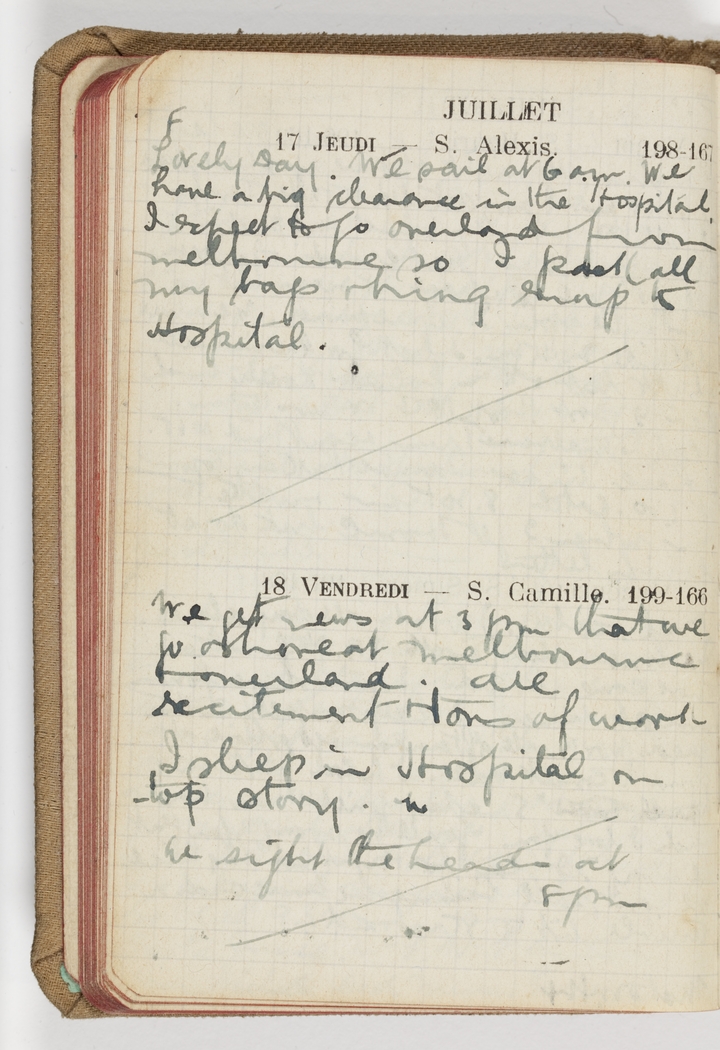 JUILLET
F
17 JEUDI — S. Alexis. 198-167
Lovely day. We sail at 6 am. We
have a big clearance in the Hospital.
I expect to go overland from
melbourne so I pack all
my bags & bring enuf to
Hospital.
18 VENDREDI — S. Camille. 199-166
We get news at 3 pm that we
go ashore at melbourne
& overland. all
excitement & tons of work
I sleep in Hospital on
top story.
We sight the heads at
8 pm